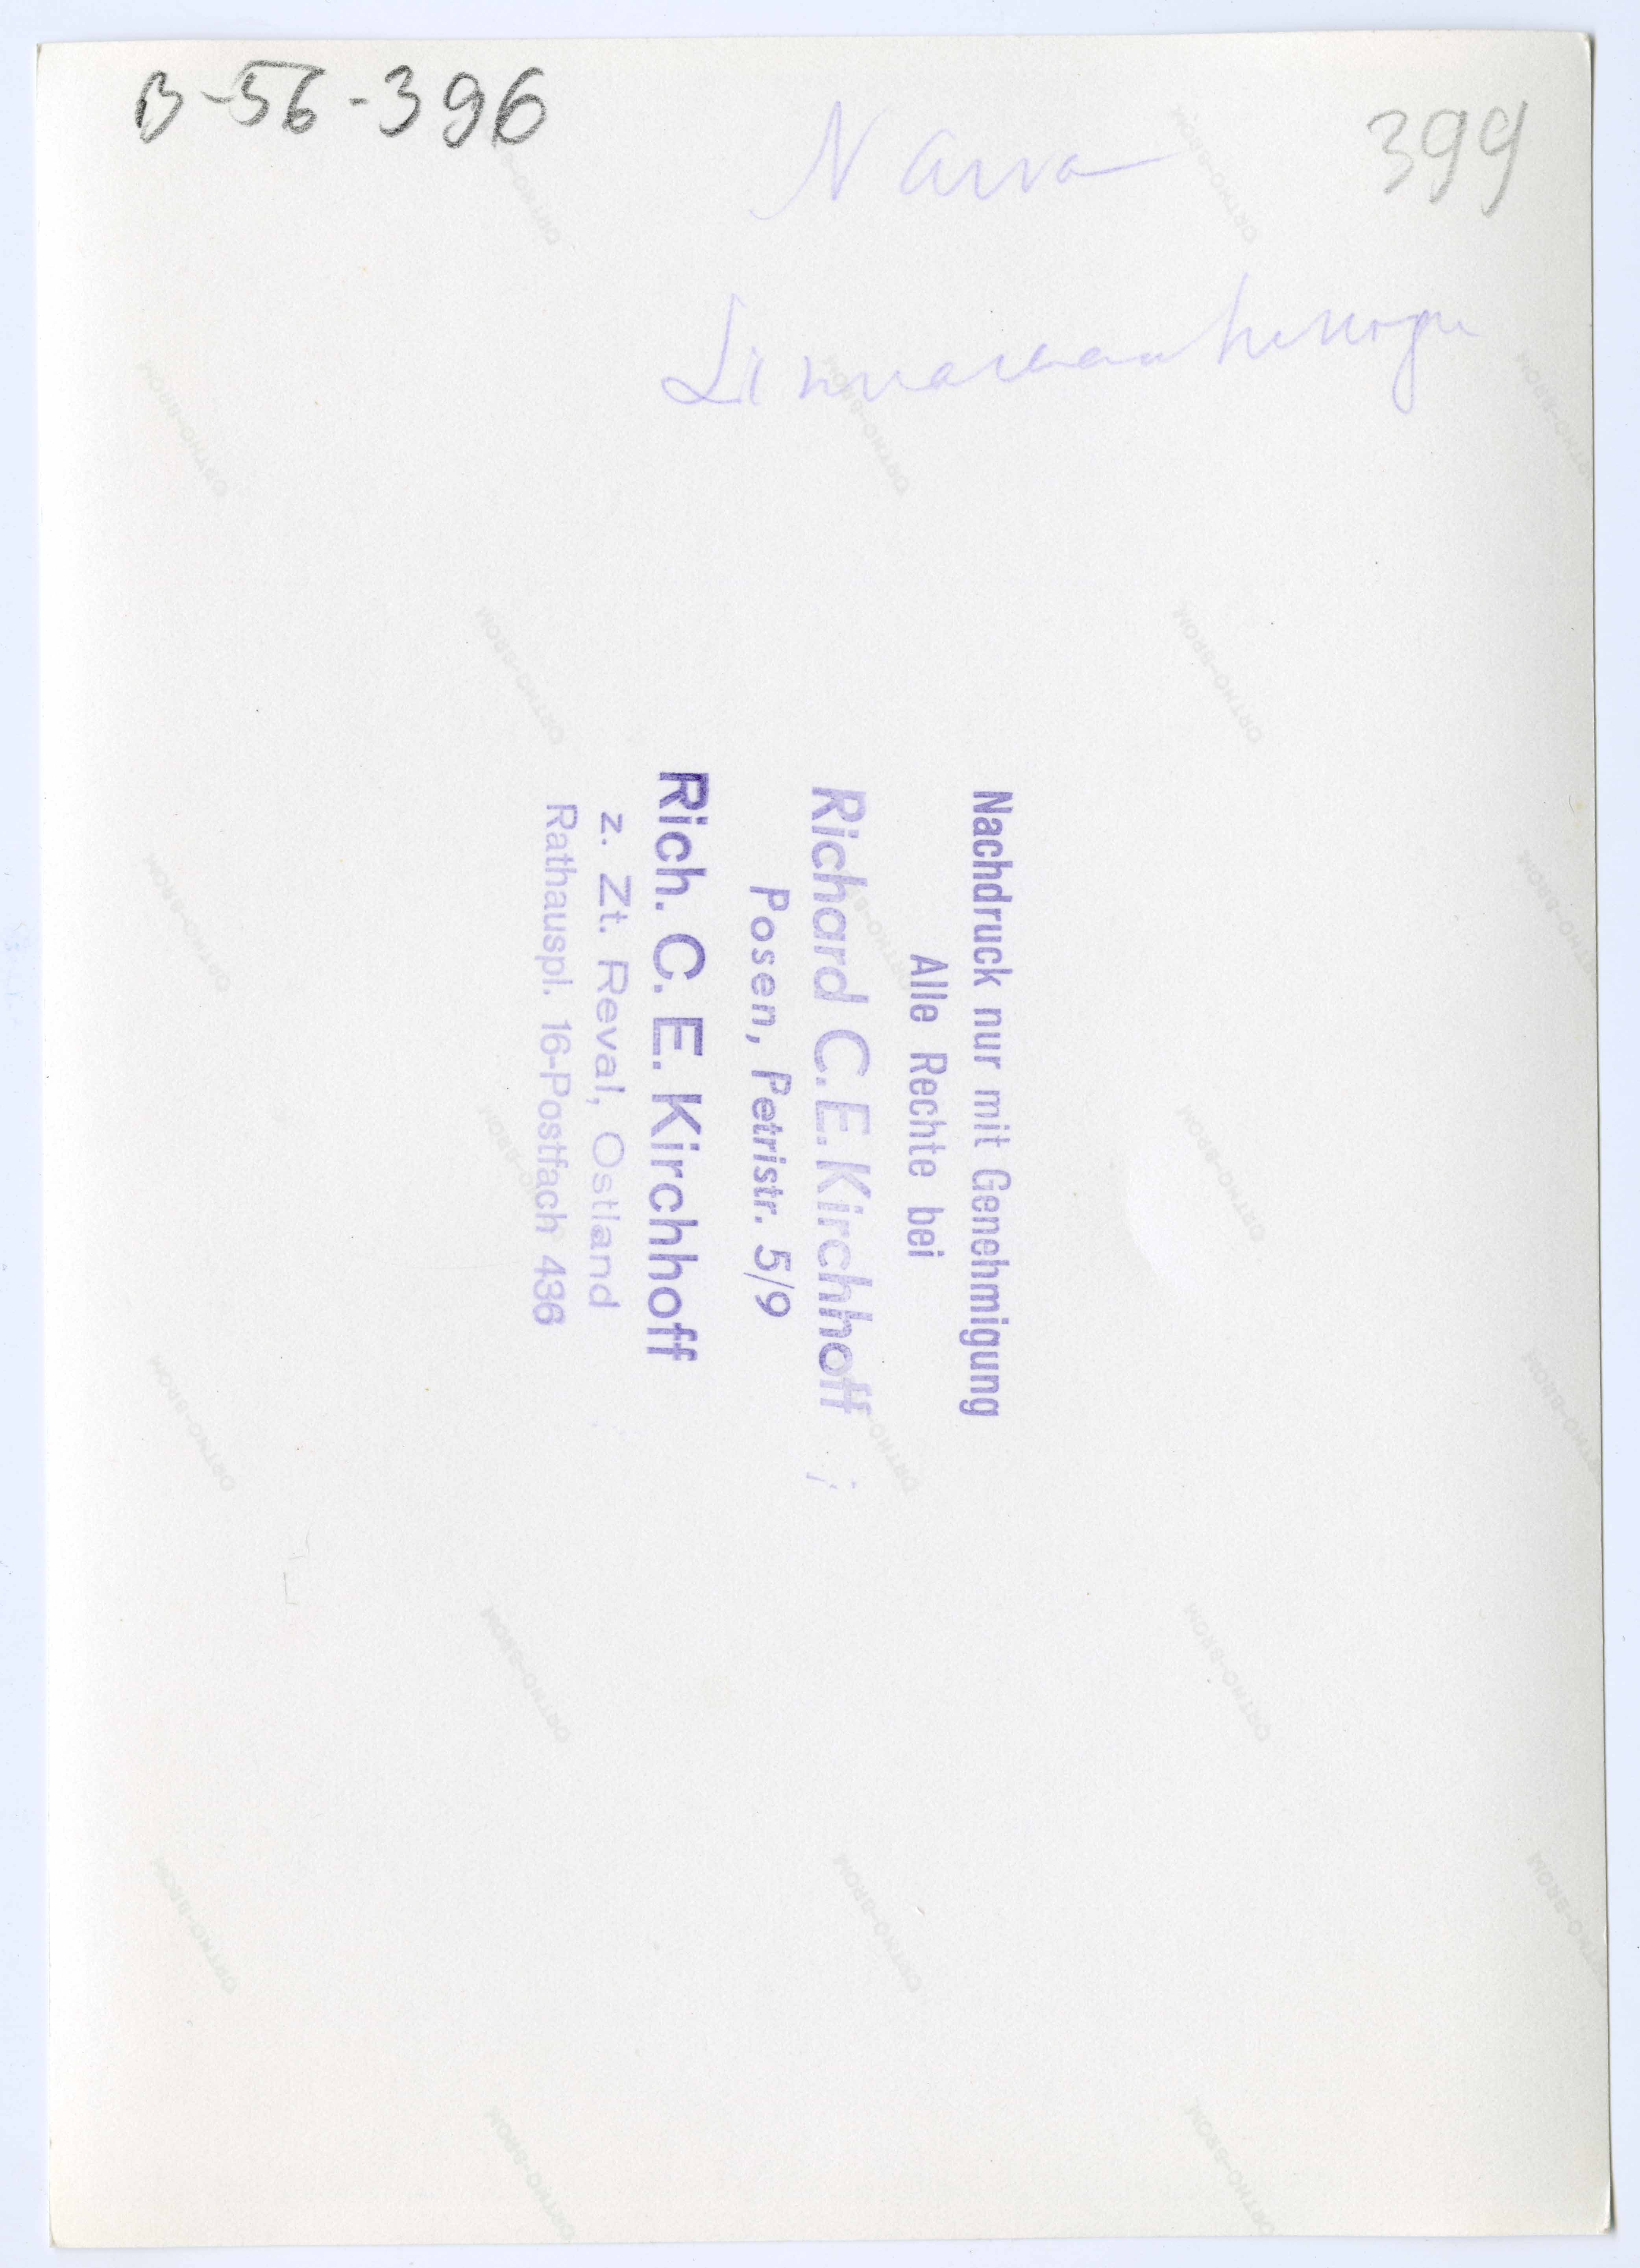 B-56-396
Narva
399
Nachdruck nur mit Genehmigung
Alle Rechte bei
Richard C. E. Kirchhoff
Posen, Petristr. 5/9
Rich. C. E. Kirchhoff
z. Zt. Reval, Ostland
Rathauspl. 16-Postfach 436
ORTHO-BROM